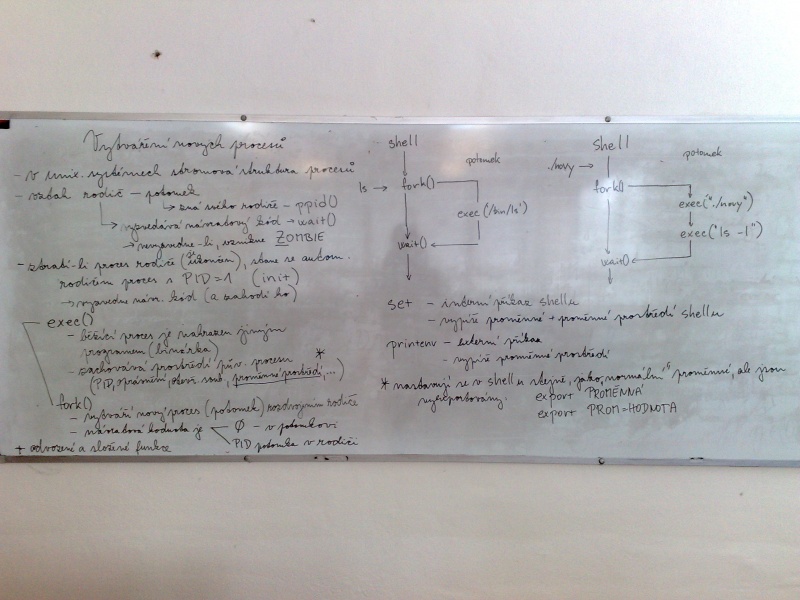 Vytváření nových procesů
- v unix. systémech stromová struktura procesů
- vztah rodič - potomek
zná svého rodiče - ppid()
vyzvedává návratový kód → wait()
→ nevyzvedne-li, vznikne ZOMBIE
- ztratí-li proces rodiče (ukončen), stane se autom.
rodičem proces s PID=1 (init)
→ vyzvedne návr. kód (a zahodí ho)
exec()
- běžící proces je nahrazen jiným
programem (binárka)
- zachovává prostředí pův. procesu
(PID, oprávnění, otevř. soub., proměnné prostředí*, ...)
fork()
- vytváří nový proces (potomek) rozdvojením rodiče
- návratová hodnota je
0 - v potomkovi
PID potomka v rodiči
+ odvozené a složené funkce
shell
potomek
ls → fork()
exec(/bin/ls)
wait()
shell
potomek
./novy →
fork()
exec("./novy")
exec("ls -l")
wait()
set - interní příkaz shellu
- vypíše proměnné + proměnné prostředí shellu
printenv - externí příkaz
- vypíše proměnné prostředí
* nastavují se v shellu stejně, jako „normální" proměnné, ale jsou
vyexportovány.
export PROMĚNNÁ
export PROM=HODNOTA